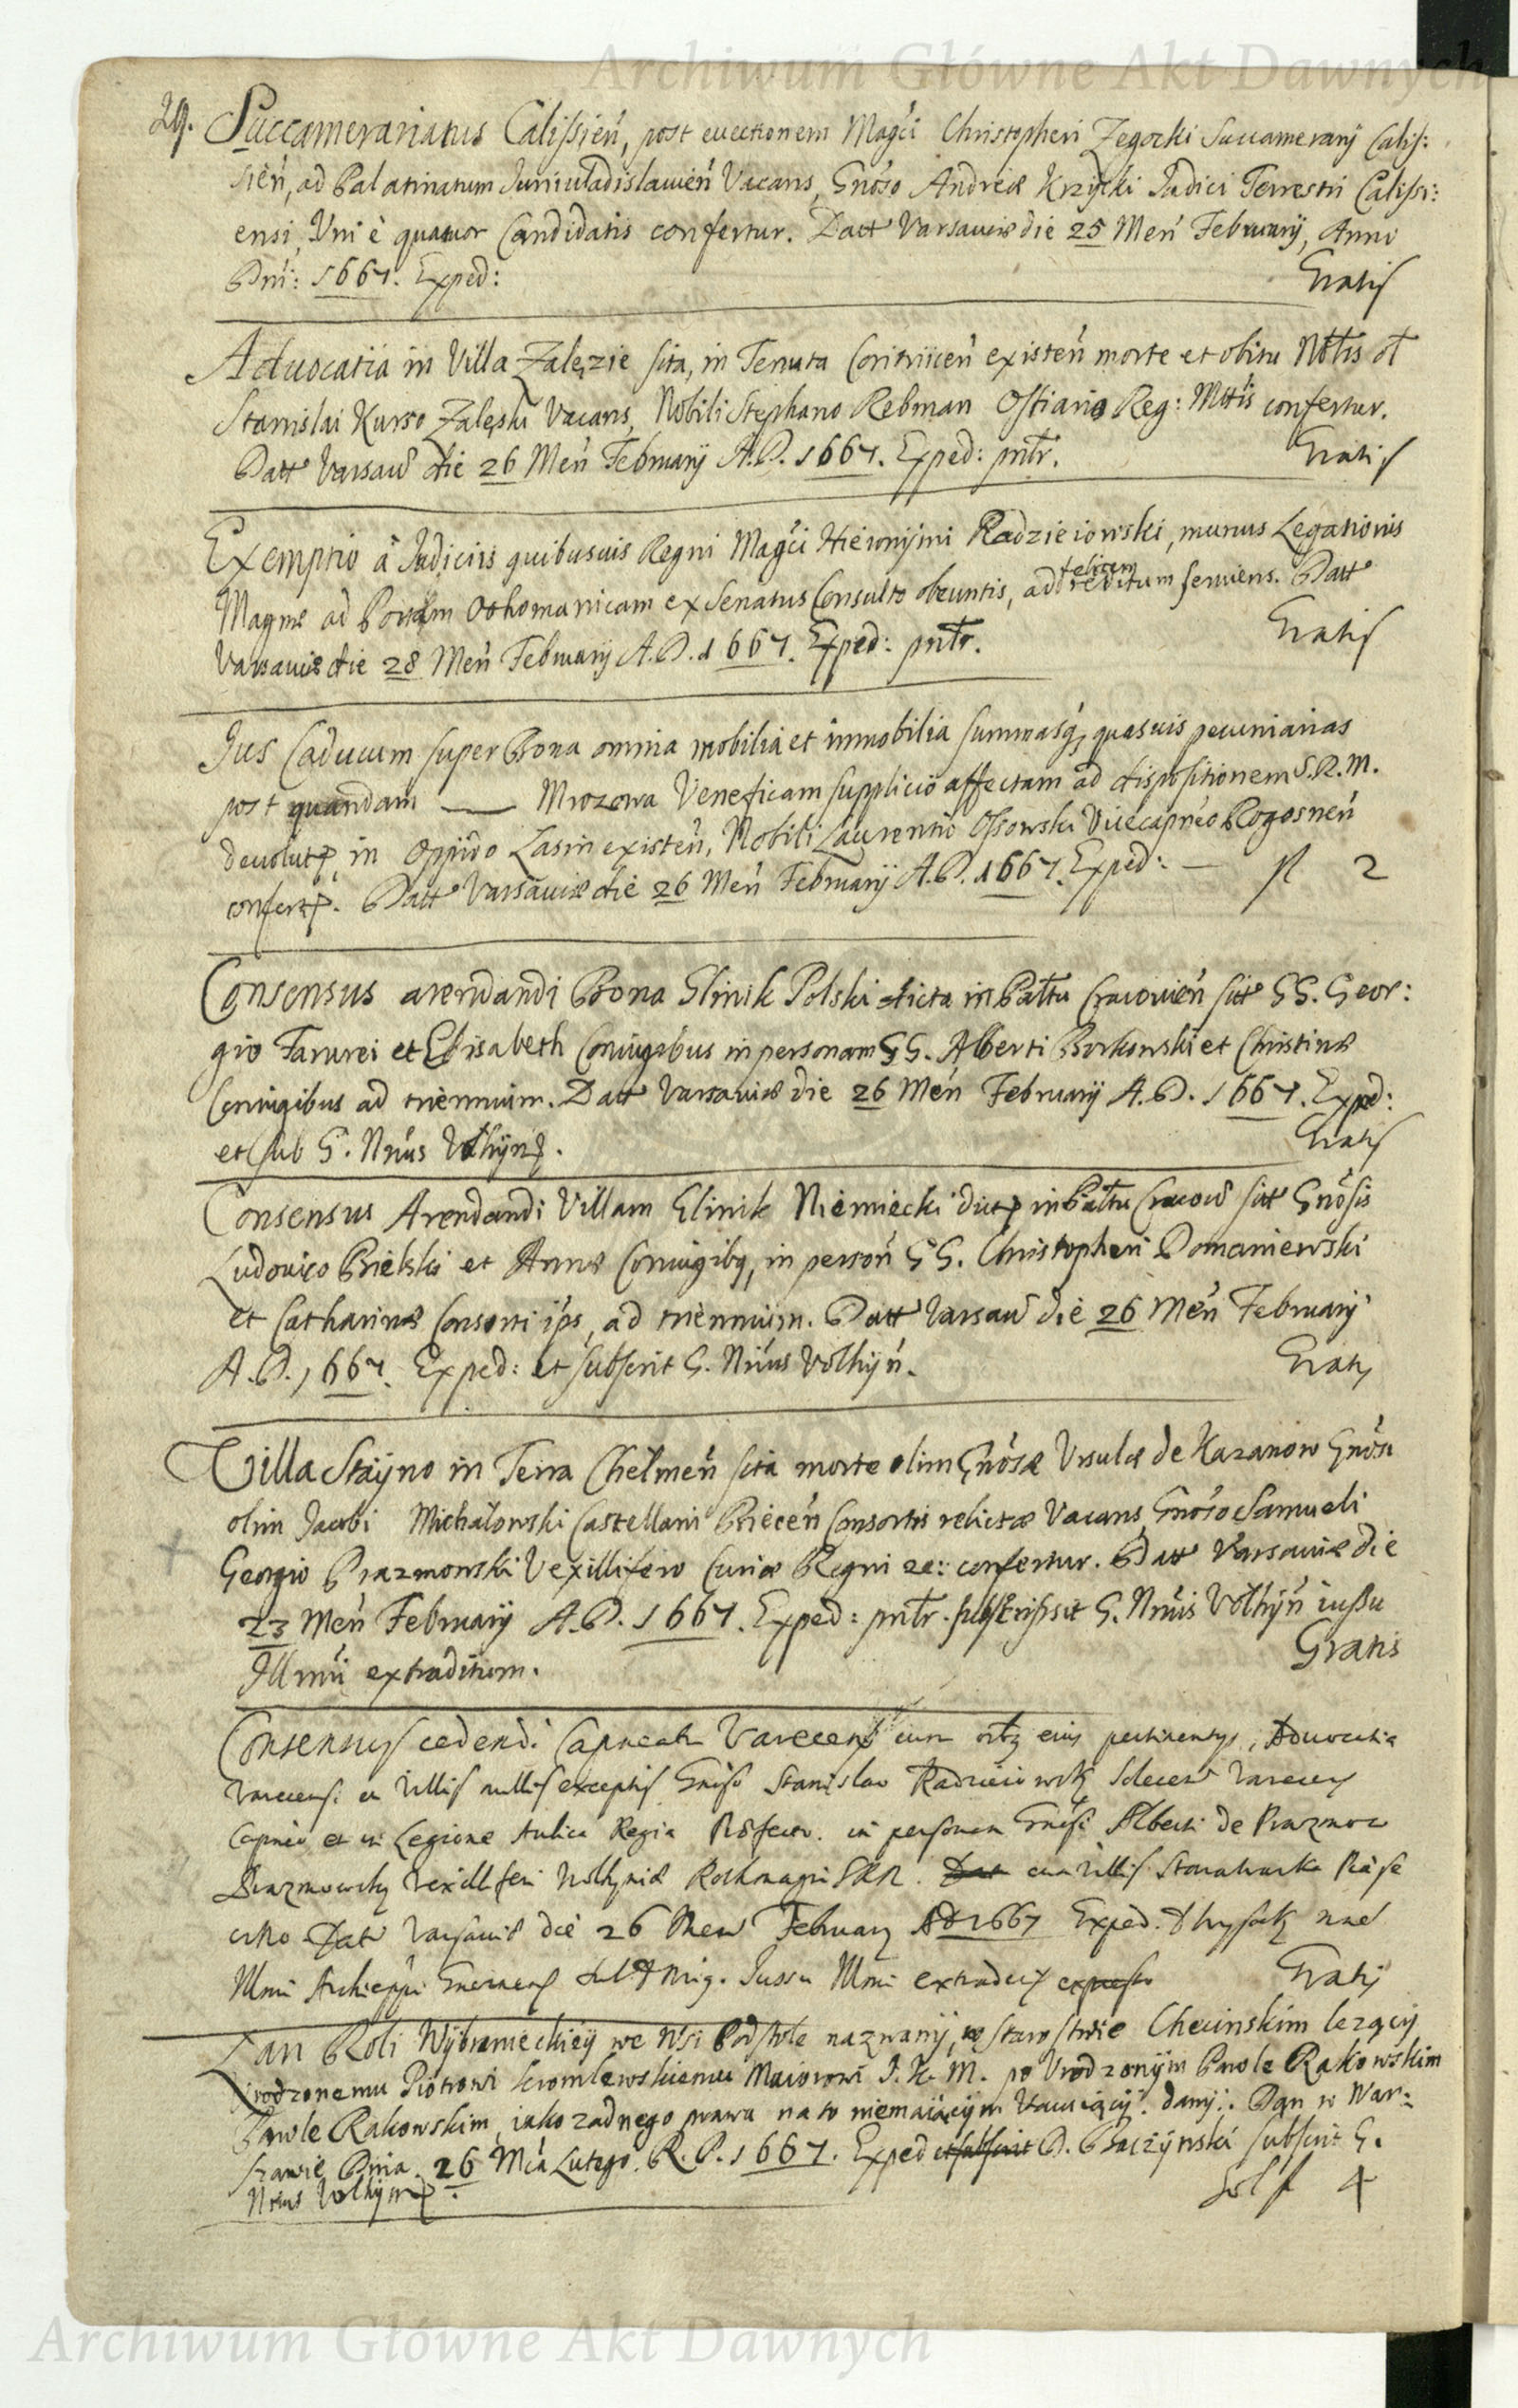 Archiwum Główne Akt Dawnych
29. Succamerariatus Calissień, post euectionem Magci Christopheri Zegocki Succamerarij Calis:
sień, ad Palatinatum Juniuladislauień Vacans, Gnoso Andreæ Krzycki Judici Terrestri Calissi:
ensi, Vni è quatuor Candidatis confertur. Datt Varsauiæ die 25 Meń February, Anno
Dni: 1667. Exped: Gratis
Aduocatia in Villa Zalęzie sita, in Tenuta existeń morte et obitu Nobtis ol
Stanislai Kurso Zaleski Vacans, Nobili Stephano Rebman Ostiario Reg: Mttis confertur.
Datt Varsau die 26 Meń February A.D. 1667. Exped: pntr. Gratis
Exemptio à Judiciis quibusuis Regni Magci Hieronymi Radzieiowski, munus Legationis
Magnæ ad Portam Othomanicam ex Senatus Consulto obeuntis, ad felicem reditum seruiens. Datt
Varsauiæ die 28 Meń February A.D. 1667. Exped: pntr. Gratis
Jus Caducum super Bona omnia mobilia et immobilia summasq, quasuis pecuniarias
post quandam — Mrozowa Veneficam supplicio affectam ad dispositionem S.R.M.
deuolut, in Oppido Lasin existeń, Nobili Laurentio Ossowski Vicecapneo Rogosneń
confert. Datt Varsauiæ die 26 Meń February A.D. 1667. Exped: — fl 2
Consensus arendandi Bona Glinik Polski dicta in Pałtu Cracouień sitt GG. Geor:
gio et Elisabeth Coniugibus in personam GG. Alberti Borkowski et Christinæ
Coniugibus ad triennium. Datt Varsauiæ die 26 Meń February A.D. 1667. Exped:
et sub G. Nrius Volhyn. Gratis
Consensus Arendandi Villam Glinik Niemiecki dict in Pałtu Cracow sitt Gnosis
Ludouico Bielski et Annæ Coniugibq, in persoń GG. Christopheri Domaniewski
et Catharinæ Consorti ips, ad triennium. Datt Varsau die 26 Meń February
A.D. 1667. Exped: et subscrit G. Nrius Volhyń. Gratis
Villa Stayno in Terra Chelmeń sita morte olim Gnosæ Vrsulæ de Kazanow Gnosi
olim Jacobi Michałowski Castellani Bieceń Consortis relictæ Vacans, Gnoso Samueli
Georgio Prazmowski Vexillifero Curiæ Regni ze: confertur. Datt Varsauiæ die
23 Meń February A.D. 1667. Exped: pntr. subscripsit G. Nrius Volhyń iussu
Illmi extraditum. Gratis
Consensus cedendi Capneatu Varecens cum eius pertinentys, Aduocatia
Varecensi et Villis nullis exceptis Gnoso Stanislao Radzieiowski Varecen
Capneo et in Legione Aulica Regia in personam Gnosi Alberti de Prazmow
Prazmowski Vexilliferi Volhyniæ cum Villis
Datt Varsauiæ die 26 Men February AD 1667 Exped.
Illmi Archieppi Gnesnens Jussu Illmi extradit Gratis
Łan Roli Wybranieckiey we Wsi Podstole nazwany, w starostwie Checinskim lezący
Vrodzonemu Piotrowi Maiorowi J.K.M. po Vrodzonym Pawle Rakowskim
Pawle Rakowskim, iako zadnego prawa na to niemaiącym Vacuiący, dany. Dan w War:
szawie Dnia 26 Mca Lutego. R.P. 1667. Exped et subscrit D. Baczynski subscrit G.
Nrius Volhyn. Sol f 4
Archiwum Główne Akt Dawnych